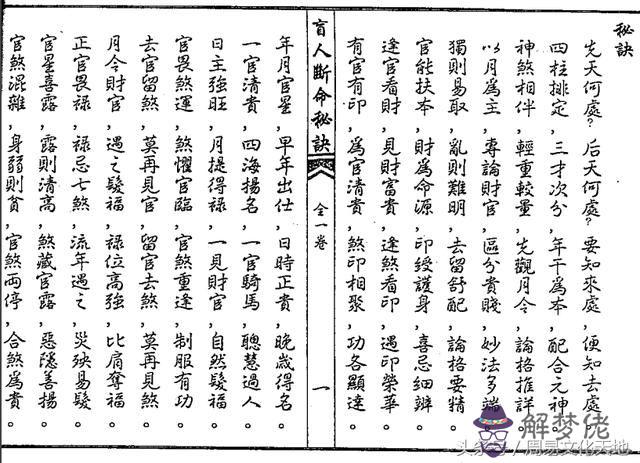 秘訣
先天何處?后天何處?要知來處,便知去處。
四柱排定,三才次分,年干為本,配合元神。
神煞相伴,輕重較量,先觀月令,論格推詳。
以月為主,專論財官,區分貴賤,妙法多端。
獨則易取,亂則難明,去留舒配,論格要精。
官能扶本,財為命源,印綬護身,喜忌細辨。
逢官看財,見財富貴,逢煞看印,遇印榮華。
有官有印,為官清貴,煞印相聚,功各顯達。
盲人斷命秘訣 全一卷 一
年月官星,早年出仕,日時正貴,晚歲得名。
一官清貴,四海揚名,一官騎馬,聰慧過人。
日主強旺,月提得祿,一見財官,自然發福。
官畏煞運,煞懼官臨,官煞重逢,制服有功。
去官留煞,莫再見官,留官去煞,莫再見煞。
月令財官,遇之發福,祿位高強,比肩奪福。
正官畏祿,祿忌七煞,流年遇之,災殃易發。
官星喜露,露則清高,煞藏官露,惡隱善揚。
官煞混雜,身弱則貧,官煞兩停,合煞為貴。
解梦佬
头条号/周易文化天地